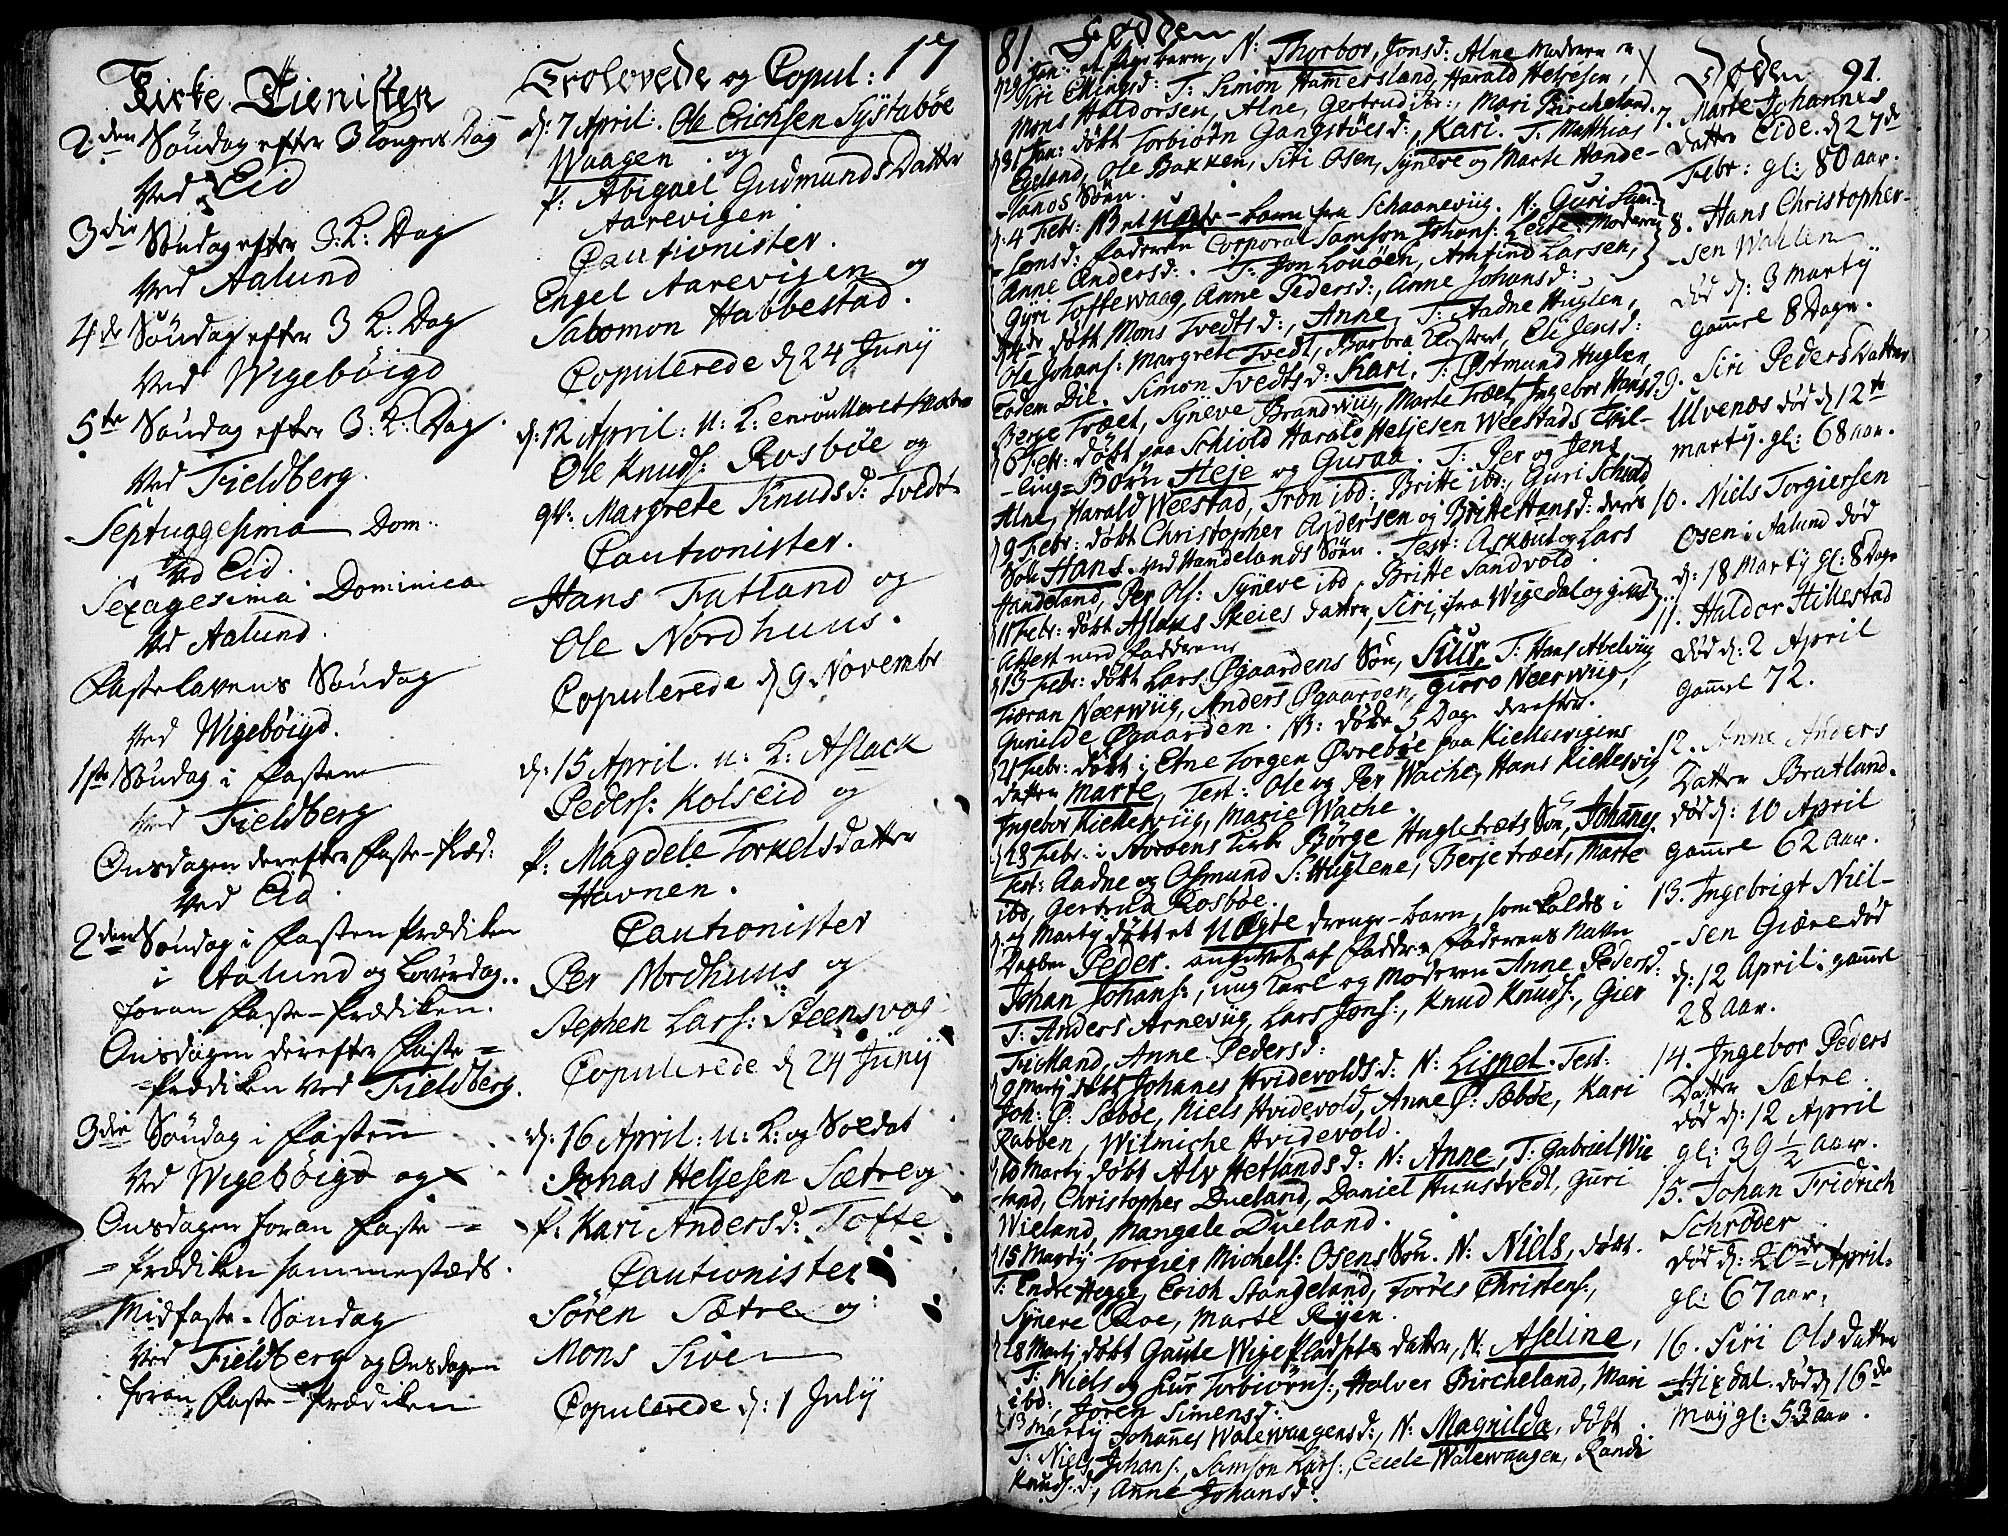 Kirke Tienisten
2den Søndag efter 3 Konger Dag
Ved Eid
3die Søndag efter 3: K: Dag
Ved Aalund
4de Søndag efter 3 K: Dag
Ved Wigebøigd
5te Søndag efter 3: K: Dag
Ved Fieldberg
Septuggesima Dom:
Ved Eid
Sexagesima Dominica
Ved Aalund
Fastelavens Søndag
Ved Wigebøigd
1ste Søndag i Fasten
Ved Fieldberg
Onsdagen derefter Faste-Præd:
Ved Eid
2den Søndag i Fasten Prædiken
i Aalund og Løverdag
foran Faste-Prædiken.
Onsdagen derefter Faste=
=Prædiken Ved Fieldberg.
3die Søndag i Fasten
Ved Wigebøigd og
Onsdagen foran Faste-=
=Prædiken sammestæds.
Midfaste-Søndag
Ved Fieldberg og Onsdagen
foran Faste-Prædiken
Trolovede og Copul: 17
d: 7 April: Ole Erichsen Systabøe
Waagen og
p: Abigael Gudmunds Datter
Aarevigen
Cautionister.
Engel Aarevigen og
Salomon Habbestad.
Copulerede d 24 Junij
d: 12 April: u: K: enroulleret
Ole Knuds: Rosbøe og
qv: Margrete Knudsd: Tvedt
Cautionister.
Hans Fatland og
Ole Nordhuus.
Copulerede d 9 Novembr
d: 15 April. u: K: Aslack
Peders: Kolseid og
p: Magdele Torkelsdatter
Havnen.
Cautionister
Per Nordhuus og
Stephen Lars: Steensvog
Copulerede d 24 Junij
d: 16 April: u: K: og Soldat
Jonas Heljesen Sætre og
p: Kari Andersd: Tofte
Cautionister
Søren Sætre og
Mons Sioe
Copulerede d: 1 Julij
81. Fødde
Jan: et barn, N: Thorbor, Jonsd: Alne Moderen
Siri Ellingsd: T: Simon Hamersland, Harald Heljesen,
Mons Haldorsen, Alne, Gertrud ibd:, Mari Bircheland.
Jan: døbt Torbiørn Gangstøesd:, Kari. T: Matthias
Egeland, Ole Bakken, Siri Osen, Syneve og Marte Hande-
-lands Søn.
d: 4 Febr: NB et uægte-barn fra Schaanevig. N: Guri Sam-
-sonsd: Faderen Corporal Samson Johans: Leite, Moderen
Anne Andersd:. T: Jon Louøen, Amfind Larsen,
Gyri Toftewaag, Anne Pedersd:, Anne Johansd:
døbt Mons Tvedtsd:, Anne, T: Aadne Huglen,
Ole Johans: Margrete Tvedt, Barbra Klostret, Eli Jensd:
Eodem Die. Simon Tvedtsd: Kari, T: Østmund Huglen,
Berge Træet, Syneve Brandwiig, Marte Træet, Ingebor Hansd:
6 Febr: døbt paa Schiold Harald Heljesen Weestads Tvil-
-ling=Børn Heje og Guraa. T: Per og Jens
Alne, Harald Weestad, Tron ibd:, Britte ibd:, Guri Schiold
9 Febr: døbt Christopher Andersen og Britte Hansd: deres
Søn Hans ved Handelands Søn. Test: Askout og Lars
Handeland, Per Ols: Syneve ibd, Britte Sandvold
11 Febr: døbt Aslaus Skeies datter, Siri, fra Wigedal og givet
Attest med Fadderne
13 Febr: døbt Lars Øgaardens Søn, Siur, T: Hans Abelviig
Tiøran Neerwiig, Anders Øgaarden, Giøro Neerwiig,
Gunilde Øgaarden. NB: døde 5 Dage derefter.
21 Febr: døbt i Etne Torgen Øvrebøe paa Kiellesvigens
datter Marte, Test: Ole og Per Wache, Hans Kiellesvig
Ingebor Kiellesviig, Marie Wache.
28 Febr: i Kirke Børge Hugletræts Søn, Johanes.
Test: Aadne og Osmund S: Huglene, Berje træet, Marte
ibd, Gertrud Rosbøe.
Martij døbt et Uægte drenge-barn, som kaldes i
Daaben Peder. angivet af Fadderne Faderens Nafn
Johan Johans:, ung Karl og Moderen Anne Pedersd:
T: Anders Arneviig, Lars Jons:, Knud Knuds:, Gier
Tickland, Anne Pedersd:
9 Martij døbt Johanes Hvidevoldsd: N: Lispet. Test:
Joh: P: Sæbøe, Niels Hvidevold, Anne P: Sæbøe, Kari
Rabben, Wilmiche Hvidevold.
10 Martij døbt Alv Hetlandsd: N: Anne, T: Gabriel Wie
-land, Christopher Dueland, Daniel Huustvedt, Guri
Wieland, Mangale Dueland.
15 Martij Torgier Michels: Osens Søn. N: Niels, døbt.
T: Endre Hegge, Erich Stangeland, Torres Christens:,
Synere Roe, Marte Ryen.
18 Martij døbt Gaute Wige Pladsets datter, N: Aseline,
T: Niels og Siur Torbiørns:, Halver Bircheland, Mari
ibd:, Jøren Simensd:
13 Martij Johanes Walewaagensd:, N: Magnilda, døbt
T: Niels Johans:, Samson Lars:, Cecele Walewaagen, Randi
Knudsd:, Anne Johansd:
Døde 91.
7. Marte Johannes
Datter Eide. d 27de
Febr: gl: 80 aar.
8. Hans Christopher-
-sen Wahlen
død d: 3 Martij
gamel 8 Dage.
9. Siri Peders Datter
Ulvenos død d 12te
martij. gl: 68 aar.
10. Niels Torgiersen
Osen i Aalund død
d: 18 Martij gl: 8 Dage
11. Haldor Hillestad
død d: 2 April
gamel 72.
12. Anne Anders
Datter Bratland.
død d: 10 April
gamel 62 aar.
13. Ingebrigt Niel-
-sen Giære død
d: 12 April: gamel
28 aar.
14. Ingebor Peders
Datter Sætre
død d: 12 April
gl: 39 1/2 aar.
15. Johan Fridrich
Schrøder
død d: 20de April
gl: 67 aar.
16. Siri Ols datter
Hixdal. død d 16de
Maij gl: 53 aar.